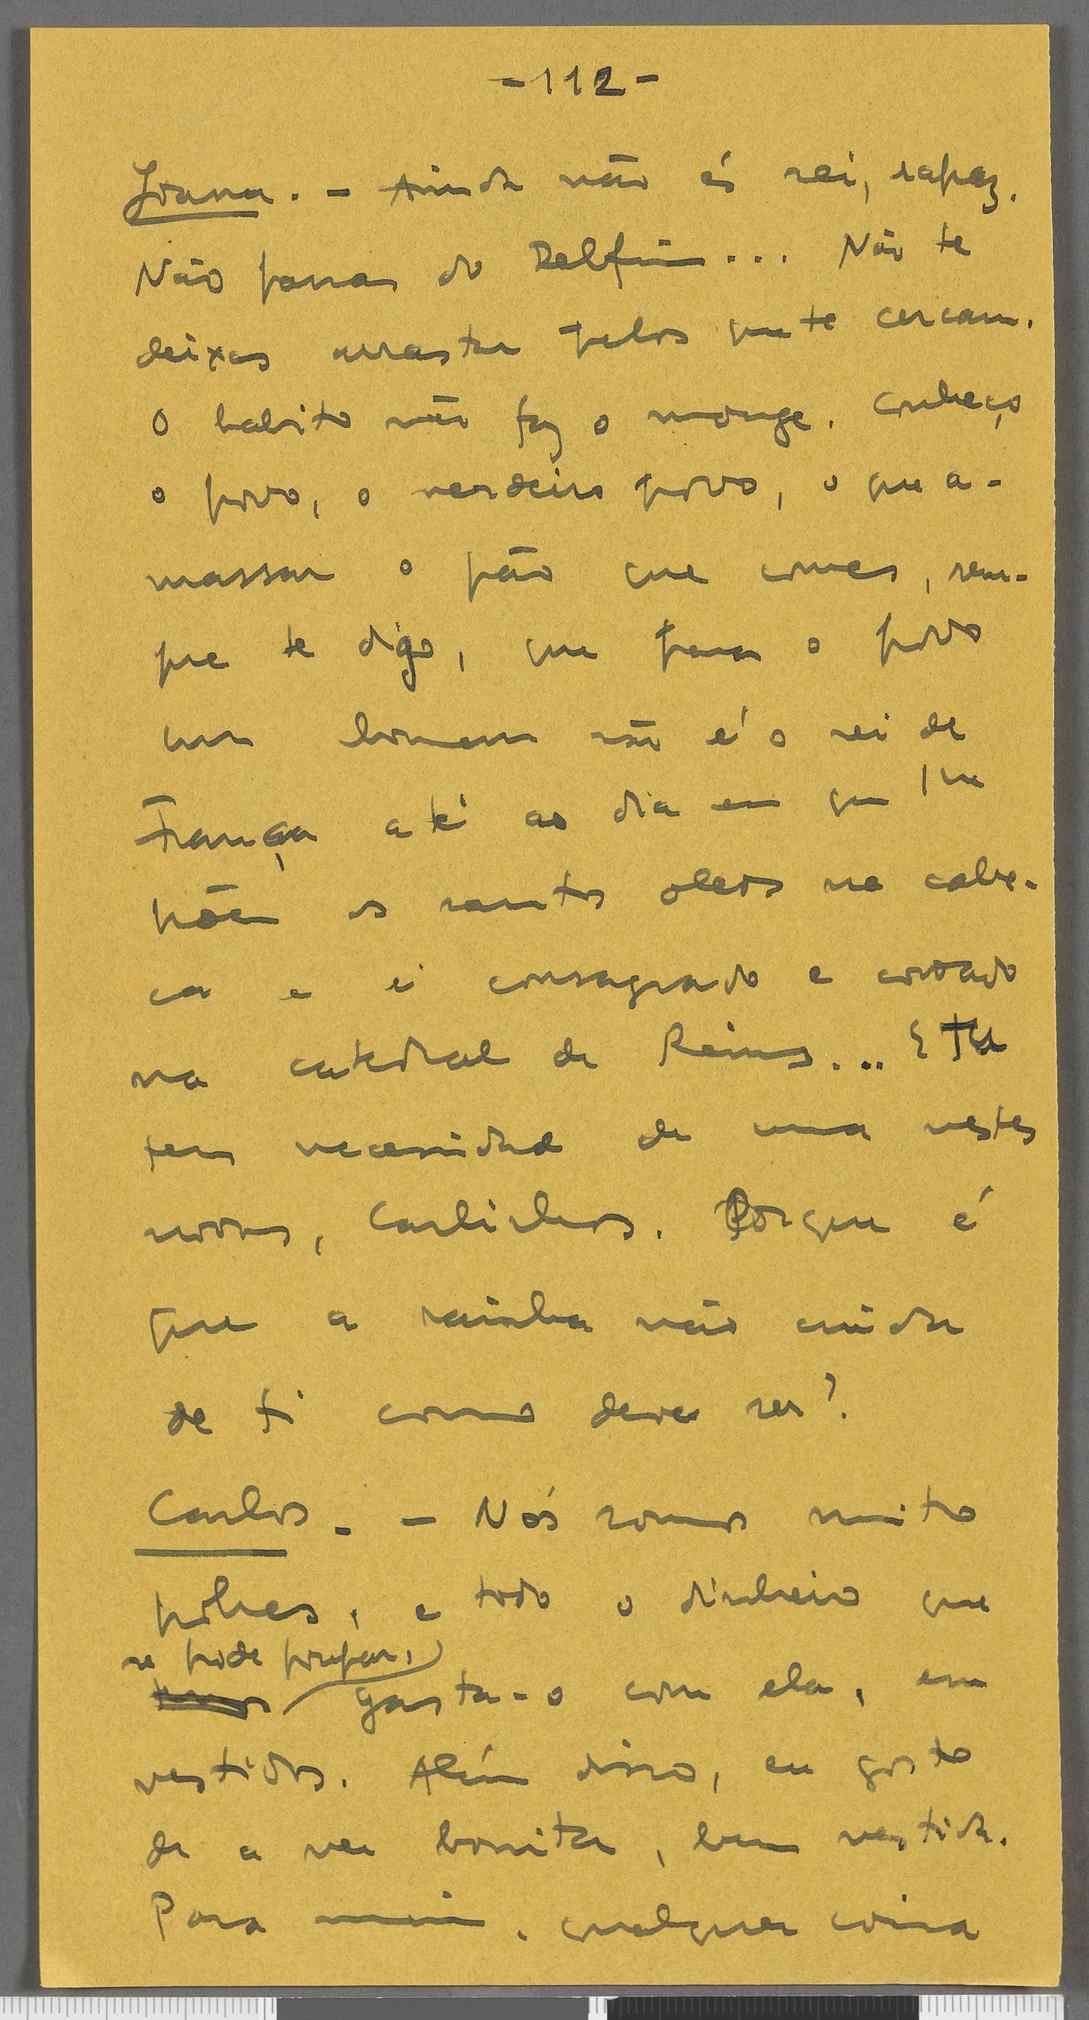 - 112 -
Joana. - Ainda não és rei, rapaz.
Não passas do Delfim... Não te
deixes arrastar pelos que te cercam.
O habito não faz o monge. Conheço
o povo, o verdeiro povo, o que a-
massa o pão que comes, sem-
pre te digo, que para o povo
um homem não é o rei de
França até ao dia em que lhe
põem os santos oleos na cabe-
ça e é consagrado e coroado
na catedral de Reims... E tu
tens necessidade de uma vestes
novas, Carlinhos. Porque é
que a rainha não cuida
de ti como deve ser?
Carlos. - Nós somos muito
pobres, e todo o dinheiro que
se pode poupar,
gasta-o com ela, em
vestidos. Além disso, eu gosto
de a ver bonita, bem vestida.
Para mim, qualquer coisa